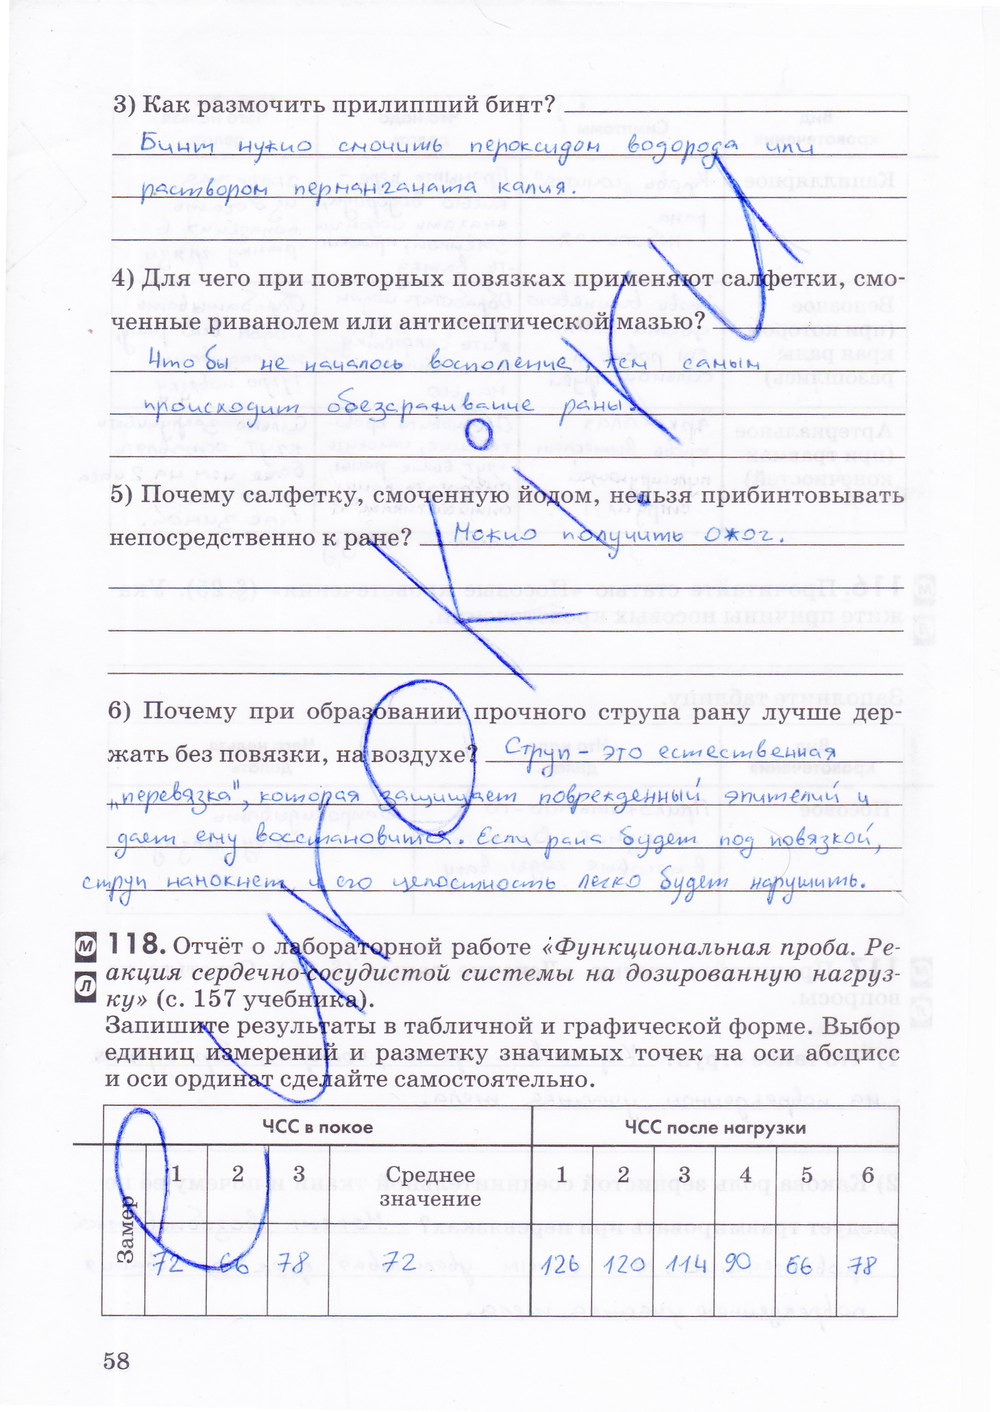 3) Как размочить прилипший бинт?
Бинт нужно смочить пероксидом водорода или
раствором перманганата калия.
4) Для чего при повторных повязках применяют салфетки, смо-
ченные риванолем или антисептической мазью?
Чтобы не началось восполение, тем самым
происходит обеззараживание раны.
5) Почему салфетку, смоченную йодом, нельзя прибинтовывать
непосредственно к ране? Можно получить ожог.
6) Почему при образовании прочного струпа рану лучше дер-
жать без повязки, на воздухе? Струп - это естественная
„перевязка", которая защищает поврежденный эпителий и
дает ему восстановится. Если рана будет под повязкой,
струп намокнет, и его целостность легко будет нарушить.
М 118. Отчёт о лабораторной работе «Функциональная проба. Ре-
Л акция сердечно-сосудистой системы на дозированную нагруз-
ку» (с. 157 учебника).
Запишите результаты в табличной и графической форме. Выбор
единиц измерений и разметку значимых точек на оси абсцисс
и оси ординат сделайте самостоятельно.
ЧСС в покое ЧСС после нагрузки
Замер 1 2 3 Среднее значение 1 2 3 4 5 6
72 66 78 72 126 120 114 90 66 78
58